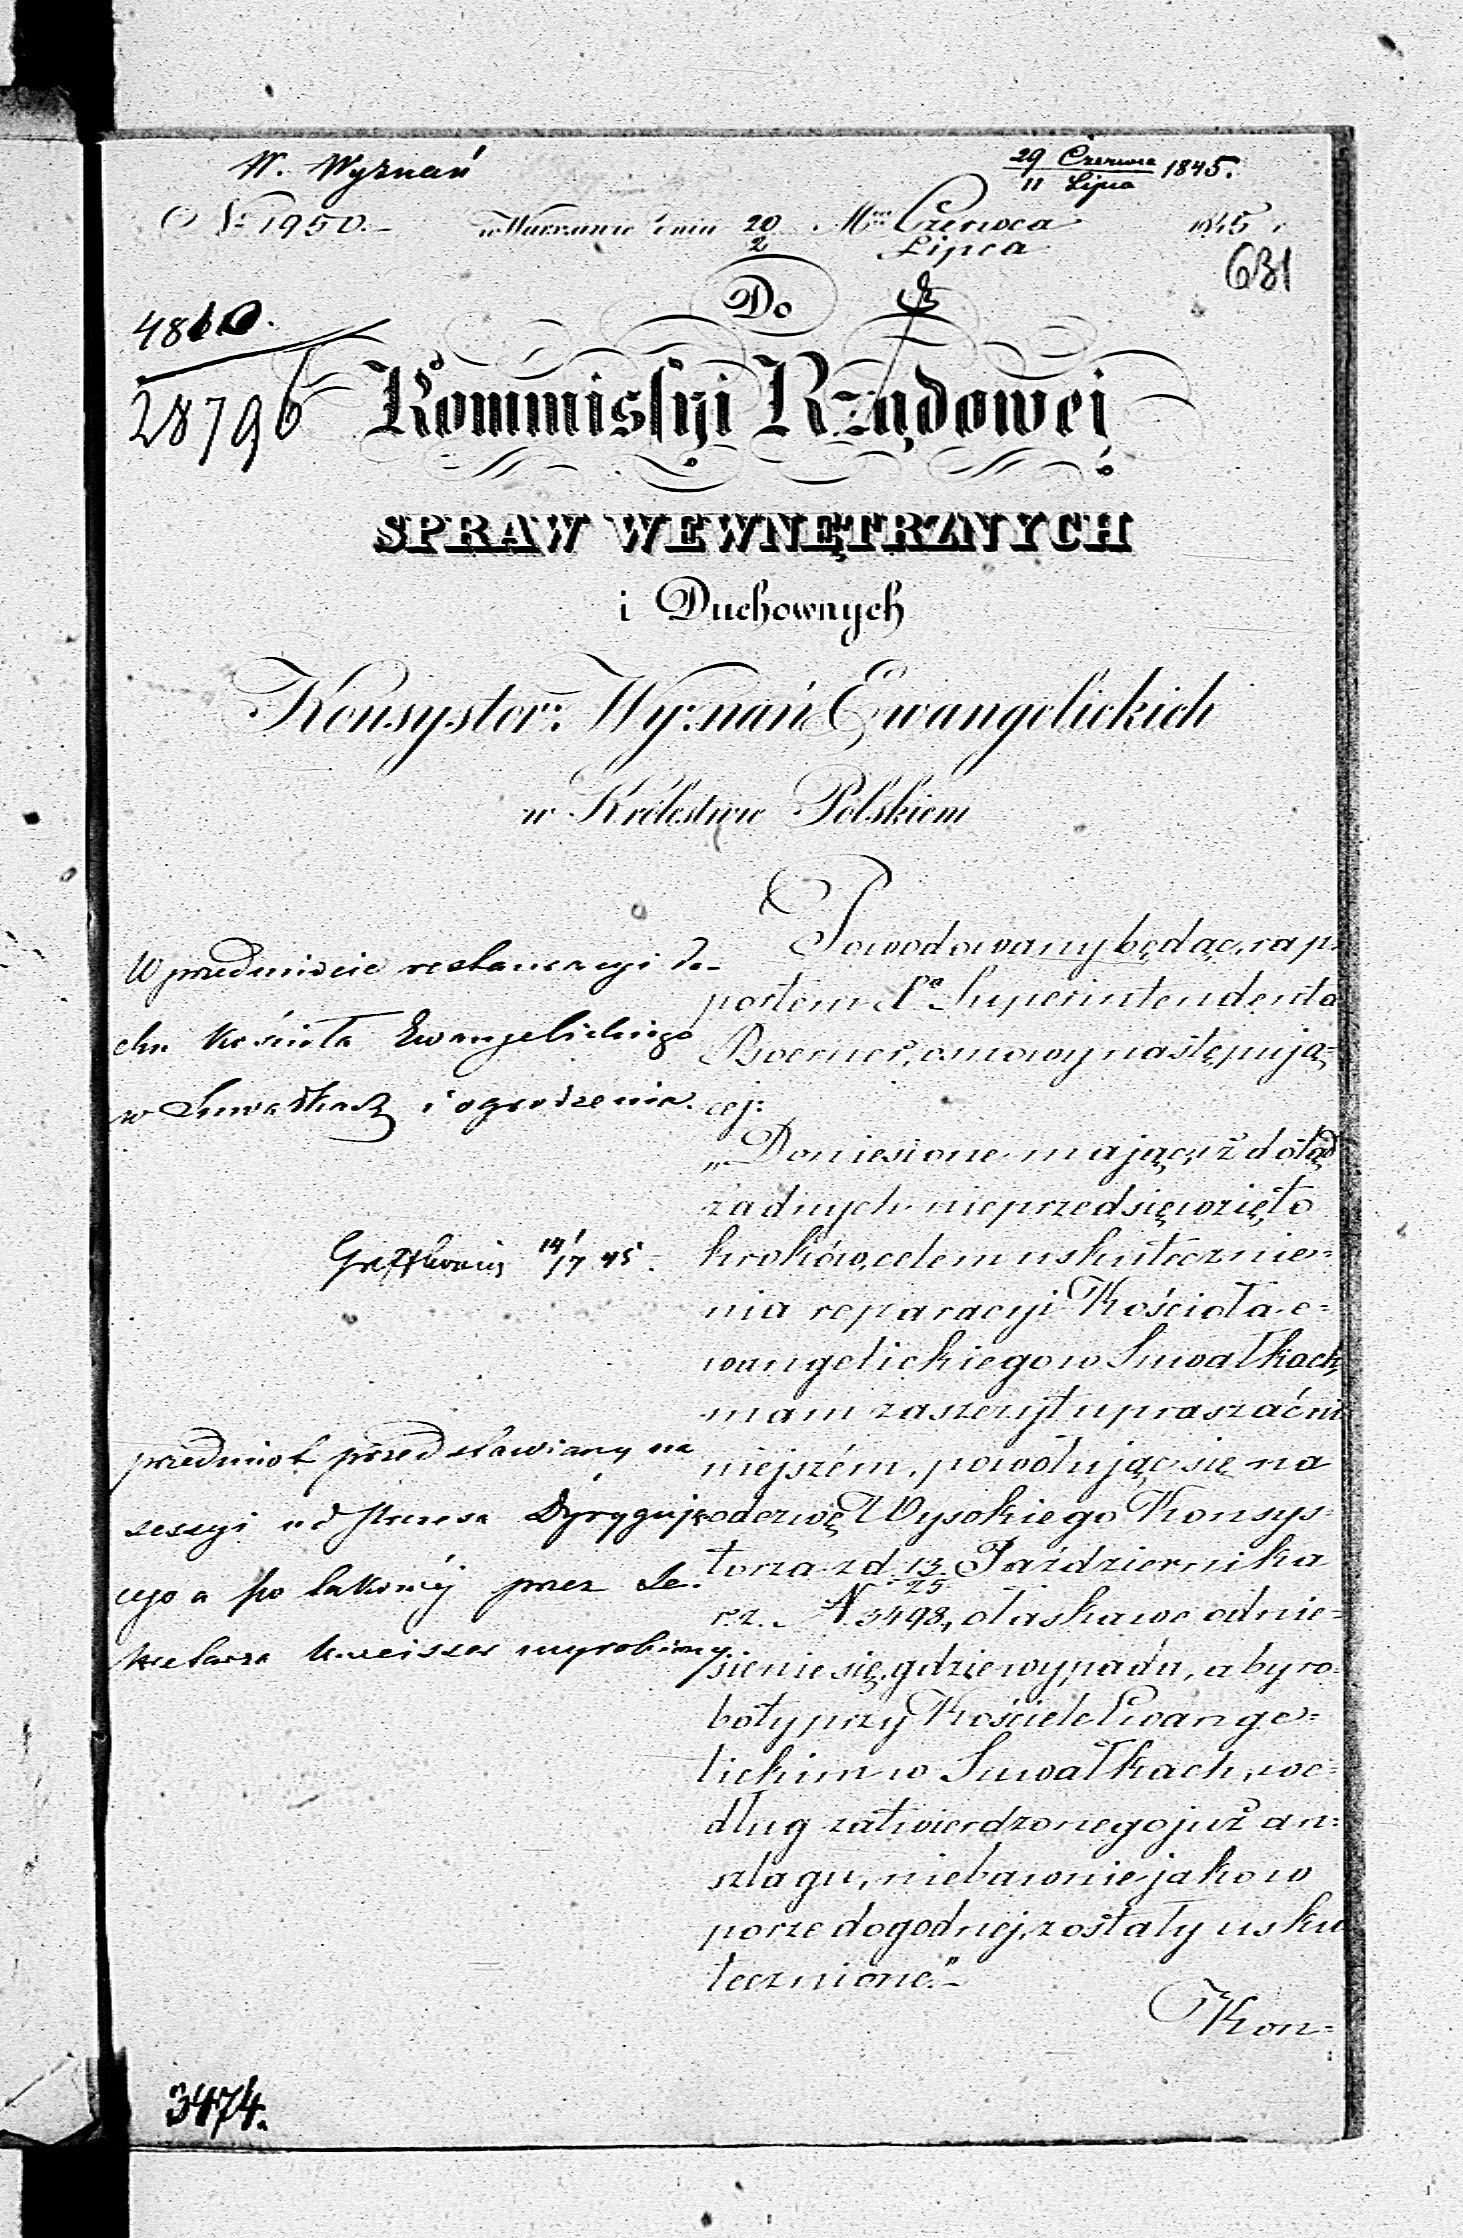 W. Wyznań
29 Czerwca / 11 Lipca 1845.
No 1950.
w Warszawie dnia 20/2 Mca Czerwca / Lipca 1845 r.
631
4810.
28796
Do
Kommissyi Rządowej
SPRAW WEWNĘTRZNYCH
i Duchownych
Konsystor: Wyznań Ewangelickich
w Królestwie Polskiem
W przedmiocie restauracyi da-
chu Kościoła Ewangelickiego
w Suwałkach i ogrodzenia.
14/7 45.
przedmiot przedstawiany na
sessyi od Prezesa Dyrygują-
cego a po takowéj przez Se-
kretarza wyrobiony
Powodowany będąc, rap-
portem Pa Superintendenta
Boerner, osnowy następują-
cej:
„Doniesione mając, iż dotąd
żadnych nieprzedsięwzięto
kroków, celem uskutecznie-
nia reparacyi Kościoła e-
wangelickiego w Suwałkach,
mam zaszczyt upraszać ni-
niejszém, powołując się na
odezwę Wysokiego Konsys-
torza z d. 13/25 Października
r. z. N. 3498, o łaskawe odnie-
sienie się, gdzie wypada, aby ro-
boty przy Kościele Ewange-
lickim w Suwałkach, we-
dług zatwierdzonego już an-
szlagu, niebawnie jako w
porze dogodnej, zostały usku-
tecznione."
Kon-
3474.